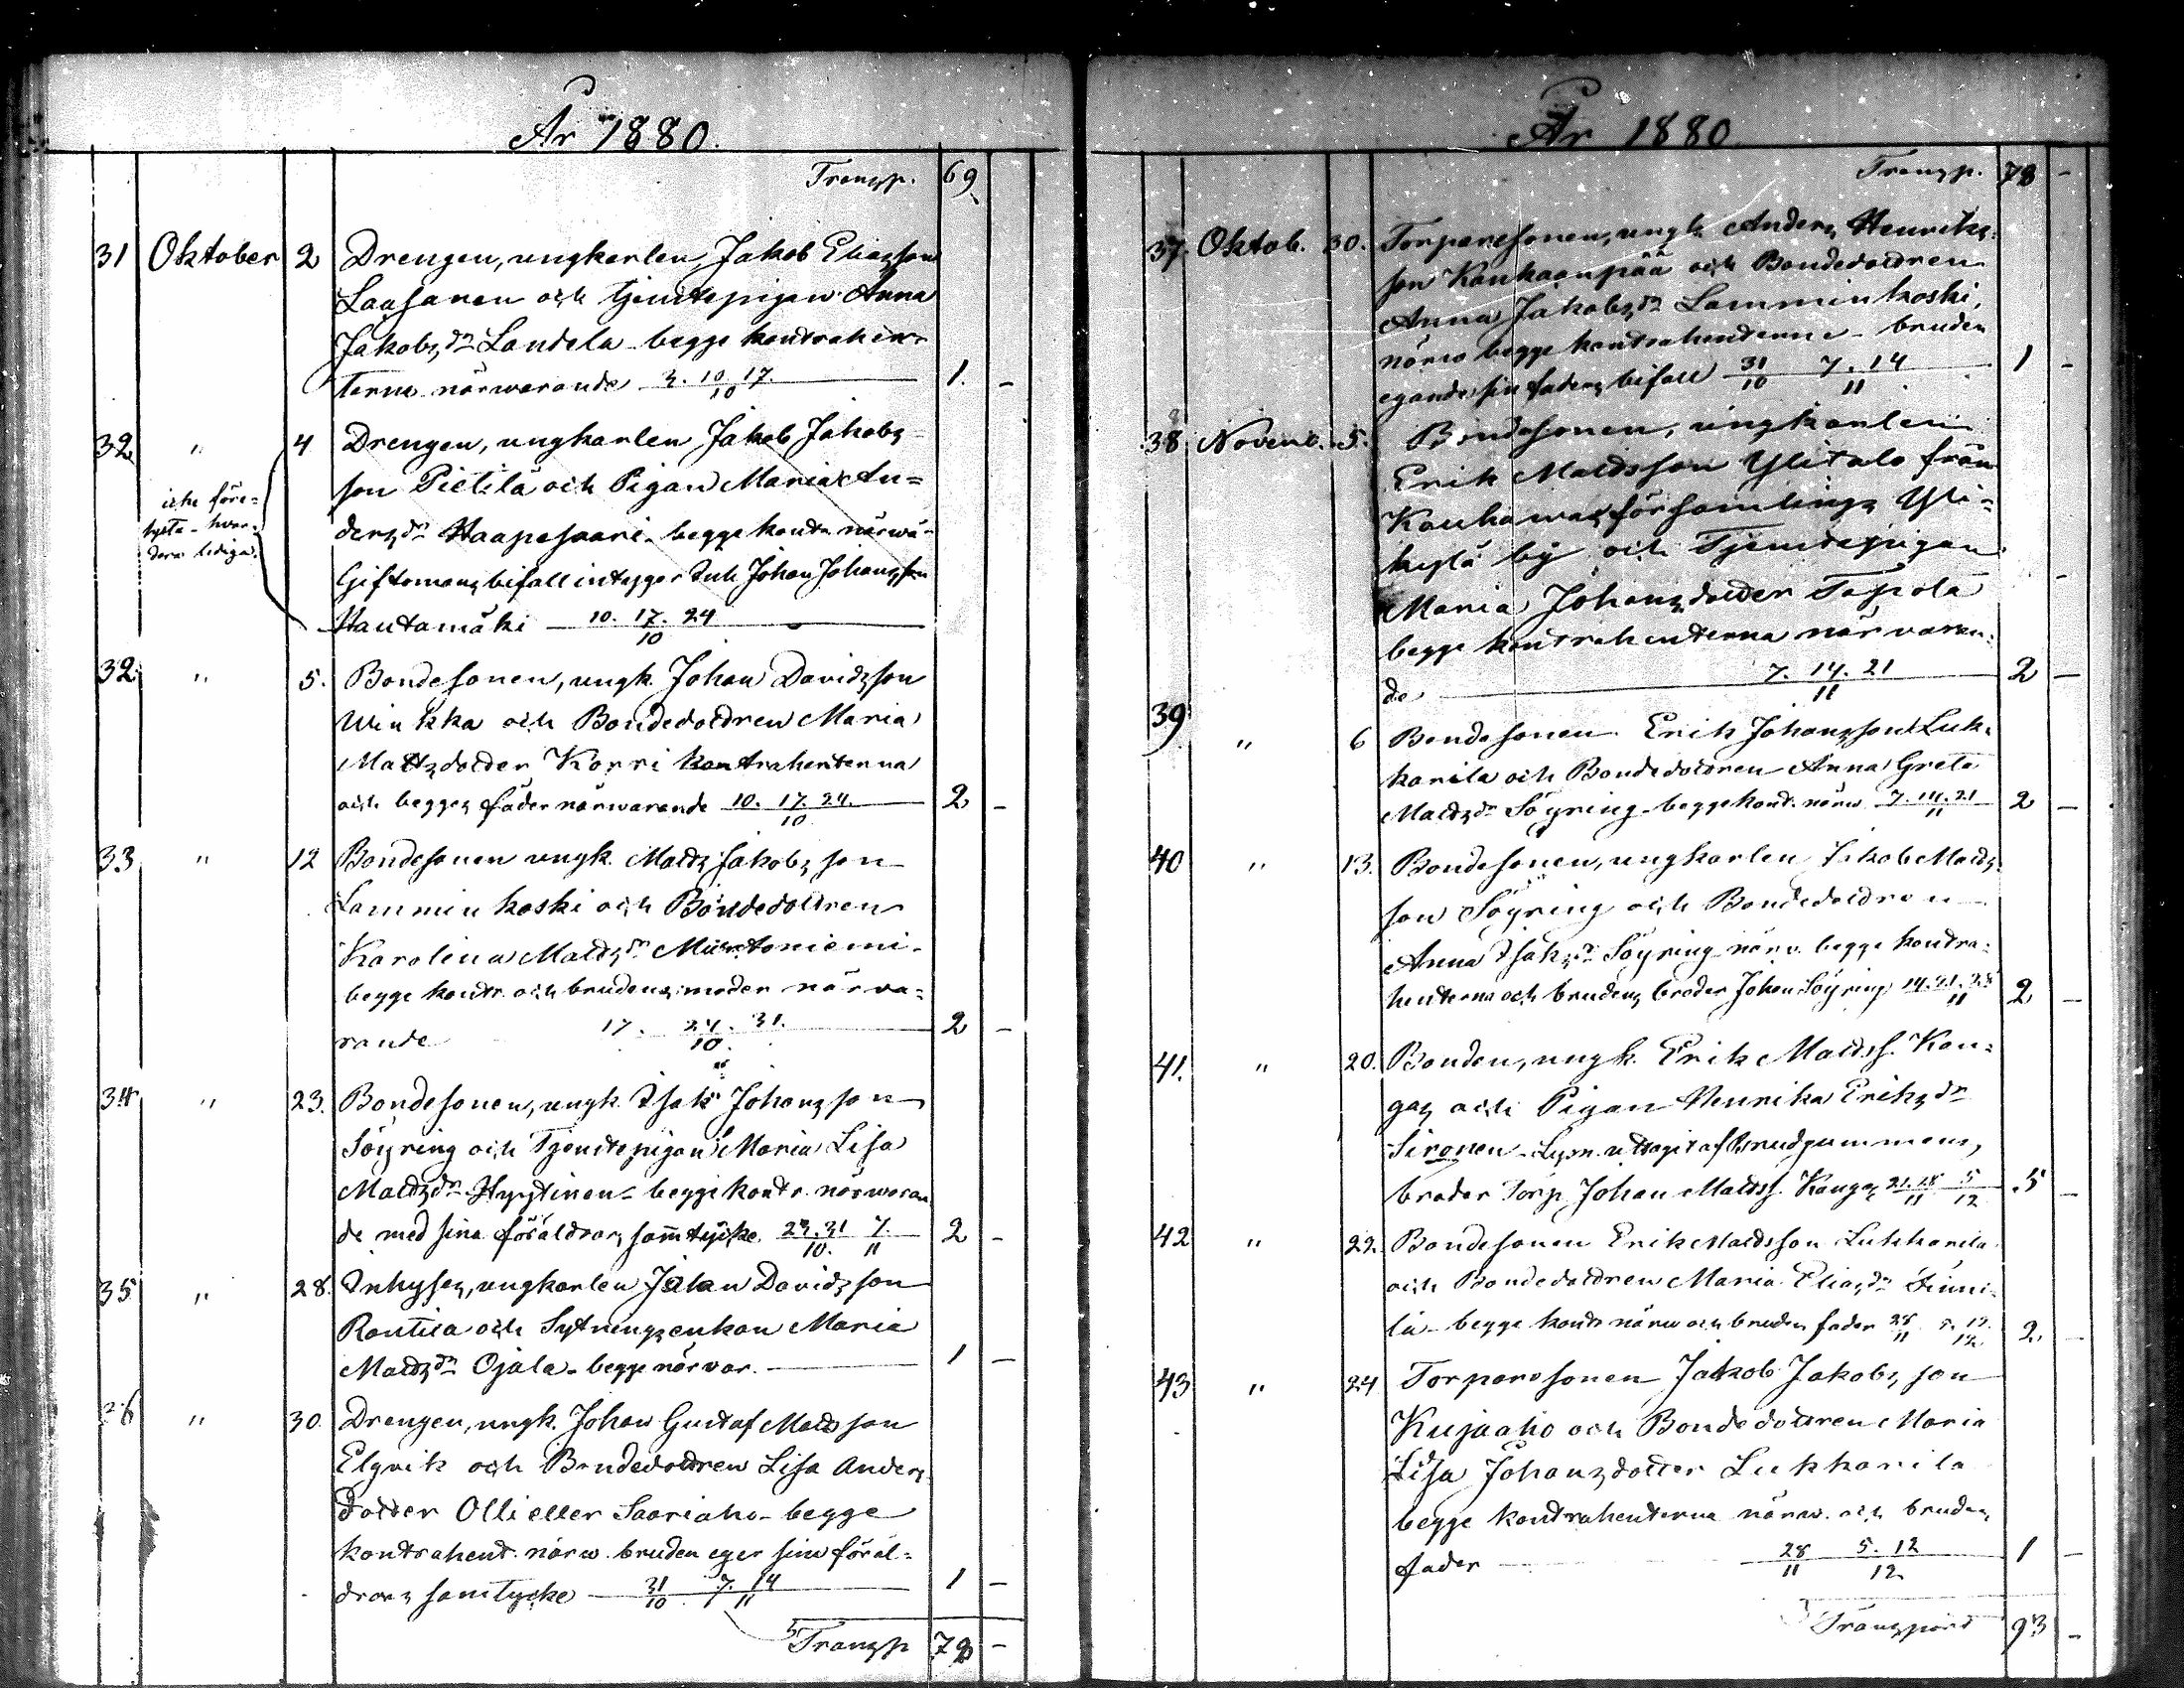 År 1880.
Transp. 69
31 Oktober 2 Drengen, ungkarlen, Jakob Eliasson
Laasanen och tjenstepigan Anna
Jakobsdr Landela begge kontrahen-
terna närwarande 3. 10. 17. 1. -
10
32 " 4 Drengen, ungkarlen Jakob Jakobs
son Pietilä och Pigan Maria An=
dersdr Haapasaari begge kontr närwa-
icke före=
lysta - hvar=
dera lediga.
Giftomans bifall intygar Inh Johan Johansson
Hautamäki 10. 17. 24
10
32 " 5. Bondesonen, ungk. Johan Davidsson
Winkka och Bondedottren Maria
Mattsdotter Korri kontrahenterna
och begges fäder närwarande 10. 17. 24. 2 -
10
33 " 12 Bondesonen ungk. Matts Jakobsson
Lamminkoski och Bondedottren
Karolina Mattsdr
begge kontr. och brudens moder närva=
rande 17. 24. 31. 2 -
10.
34 " 23. Bondesonen, ungk. Isak Johansson
Söyring och Tjenstepigan Maria Lisa
Mattsdr Hyytinen - begge kontr. närwaran
de med sina föräldrars samtycke. 31 7. 2 -
10. 11
35 " 28. Inhyses, ungkarlen Johan Davidsson
Rantila och Sytningsenkan Maria
Mattsdr Ojala - begge närvar. 1 -
36 " 30. Drengen, ungk. Johan Gustaf Matsson
Elgvik och Bondedottren Lisa Anders
dotter Olli eller Saariaho - begge
kontrahent. närw. bruden eger sina föräl=
drars samtycke 31 7. 14 1 -
10 11
Transp 78 -
År 1880
Transp. 78 -
37. Oktob. 30. Torparesonen, ungk. Anders Henriks-
son Kauhaanpää och Bondedottren
Anna Jakobsdr Lamminkoski,
närw begge kontrahenterna - bruden
egande sin faders bifall 31 7. 14 1 -
10 11
38 Novemb. 5. Bondesonen, ungkarlen
Erik Mattsson Ylitalo från
Kauhawas församlings Yli=
kylä by och Tjenstepigan
Maria Johansdotter Tapola
begge kontrahenterna närvaran=
de 7. 14. 21 2 -
11
39 " 6 Bondesonen Erik Johansson Luk-
karila och Bondedottren Anna Greta
Mattsdr Söyring - begge kont. närw 7. 14. 21 2 -
11
40 " 13. Bondesonen, ungkarlen Jakob Matts-
son Söyring och Bondedottren
Anna Isaksdr Söyring närv. begge kontra=
henterna och brudens broder Johan Söyring 14. 21. 28 2 -
11
41. " 20. Bonden, ungk. Erik Mattss. Kan=
gas och Pigan Henrika Eriksdr
Sironen - Lysn. uttagit af Brudgummens,
broder Torp. Johan Mattss. Kangas 21. 28 5 5 -
11 12
42 " 22. Bondesonen Erik Mattsson Lukkarila
och Bondedottren Maria Eliasdr Finni-
lä - begge kontr närw och brudens fader 28 5. 12. 2. -
11 12
43 " 24 Torparesonen Jakob Jakobsson
Kujaaho och Bondedottren Maria
Lisa Johansdotter Lukkarila
begge kontrahenterna närw. och brudens
fader 28 5. 12 1 -
11 12
Transport 93 -